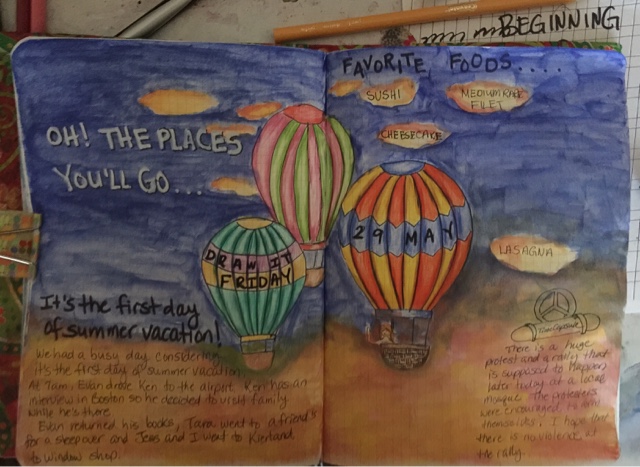 BEGINNING
OH! THE PLACES
YOU'LL GO...
DRAW IT
FRIDAY
It's the first day
of summer vacation!
We had a busy day considering
it's the first day of summer vacation.
At 7am, Evan drove Ken to the airport. Ken has an
interview in Boston so he decided to visit family
while he's there.
Evan returned his books, Tara went to a friend's
for a sleepover and Jess and I went to Kierland
to window shop.
FAVORITE FOODS.....
SUSHI
MEDIUM RARE
FILET
CHEESECAKE
29 MAY
LASAGNA
There is a huge
protest and a rally that
is supposed to happen
later today at a local
mosque. The protesters
were encouraged to arm
themselves. I hope that
there is no violence at
the rally.